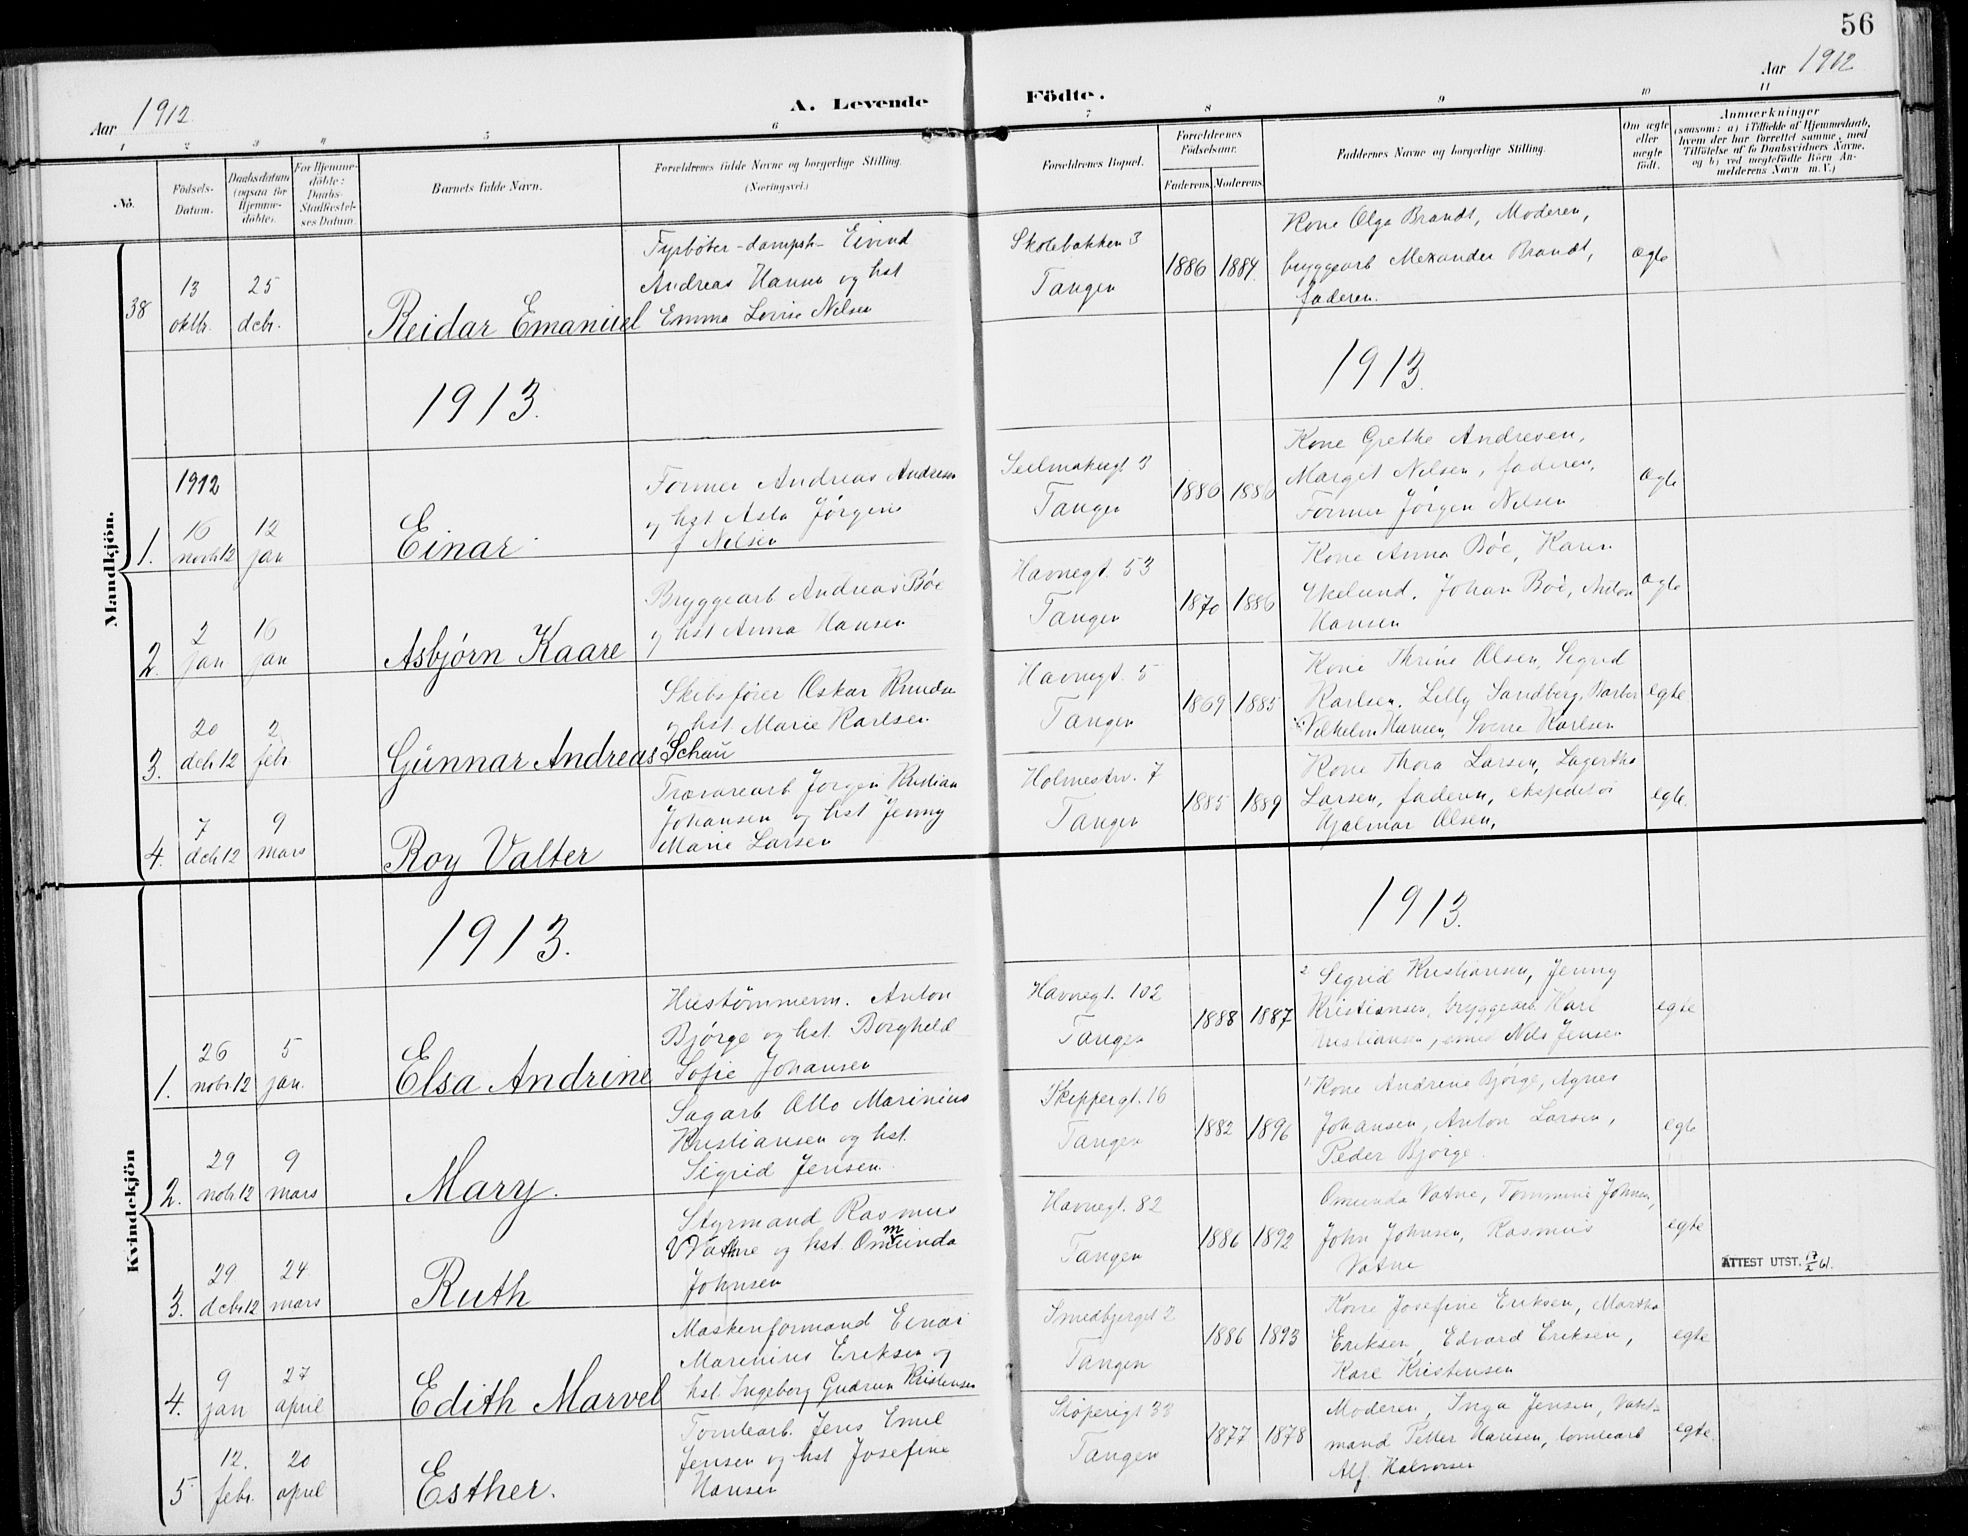 56
Aar 1912
A. Levende
Födte.
Aar 1912
1 2 3 4 5 6 7 8 9 10 11
No.
Födsels-
Datum.
Daabsdatum
(ogsaa for
Hjemme-
döbte).
For Hjemme-
döbte:
Daabs-
Stadfæstel-
ses Datum
Barnets fulde Navn.
Forældrenes fulde Navne og borgerlige Stilling.
(Næringsvei.)
Forældrenes Bopæl.
Forældrenes
Födselsaar.
Faderens Moderens
Faddernes Navne og borgerlige Stilling.
Om ægte
eller
uægte
født.
Anmærkninger
(saasom: a) i Tilfælde af Hjemmedaab,
hvem der har forrettet samme, med
Tilföielse af to Daabsvidners Navne,
og b) ved uægtefödte Börn An-
melderens Navn m. V.)
Mandkjön.
38
13
oktbr.
25
debr.
Reidar Emanuel
Fyrbøter-dampsk- Eivind
Andreas Hansen og hst
Emma Lovise Nilsen
Skolebakken 3
Tangen
1886 1884.
Kone Olga Brandt, Moderen,
bryggearb Alexander Brandt,
faderen.
ægte
1913.
1913.
1912
1.
16
novb 12
12
jan
Einar
Former Andreas Andresen
og hst Asta Jørgine
Nilsen
Seilmakergt 3
Tangen
1886 1886
Kone Grethe Andresen,
Margit Nilsen, faderen,
Former Jørgen Nilsen
ægte
2.
2
jan
16
jan
Asbjørn Kaare
Bryggearb Andreas Bóe
og hst Anna Hansen
Havnegt. 53
Tangen
1870 1886
Kone Anna Bóe, Karen
Ekelund, Johan Bóe, Anton
Hansen
ægte
3.
20
deb 12
2
febr.
Gunnar Andreas Schau
Skibsfører Oskar Knudsen
og hst. Marie Karlsen
Havnegt. 5
Tangen
1869 1885
Kone Thrine Olsen, Sigrid
Karlsen, Lilly Sandberg, Barber
Vilhelm Hansen, Sverre Karlsen
egte
4.
7
deb 12
9
mars
Roy Valter
Trævarearb Jørgen Kristian
Johansen og hst Jenny
Marie Larsen
Holmestrv. 7
Tangen
1885 1889
Kone Thora Larsen, Lagertha
Larsen, faderen, ekspeditør
Hjalmar Olsen,
egte.
Kvindekjön
1913.
1913.
1.
26
nobr 12
5
jan.
Elsa Andrine
Hustømmerm. Anton
Bjørge og hst. Borghild
Sofie Johansen
Havnegt. 102
Tangen
1888 1887
2 Sigrid Kristiansen, Jenny
Kristiansen, bryggearb Karl
Kristiansen, smed Nils Jensen
egte
2.
29
nobr 12
9
mars
Mary.
Sagarb Otto Marinius
Kristiansen og hst.
Sigrid Jensen.
Skippergt. 16
Tangen
1882 1896
1 Kone Andrine Bjørge, Agnes
Johansen, Anton Larsen,
Peder Bjørge.
egte
3.
29
debr 12
24.
mars
Ruth
Styrmand Rasmus
Vatne og hst. Omunda
Johnsen
Havnegt. 82
Tangen
1886 1892
Omunda Vatne, Tommine Johnsen,
John Johnsen, Rasmus
Vatne
egte
ATTEST UTST. 17/2 61.
4.
9
jan
27
april
Edith Marvel
Maskinformand Einar
Marinius Eriksen og
hst. Ingeborg Gudrun Kristensen
Smedbjerget 2
Tangen
1886 1893
Kone Josefine Eriksen, Martha
Eriksen, Edvard Eriksen,
Karl Kristensen
egte
5
12.
febr.
20
april
Esther.
Tomtearb. Jens Emil
Jensen og hst Josefine
Hansen
Støperigt 33
Tangen
1877 1878
Moderen, Inga Jensen, Vakt-
mand Petter Hansen, tomtearb
Alf Halvorsen
egte.